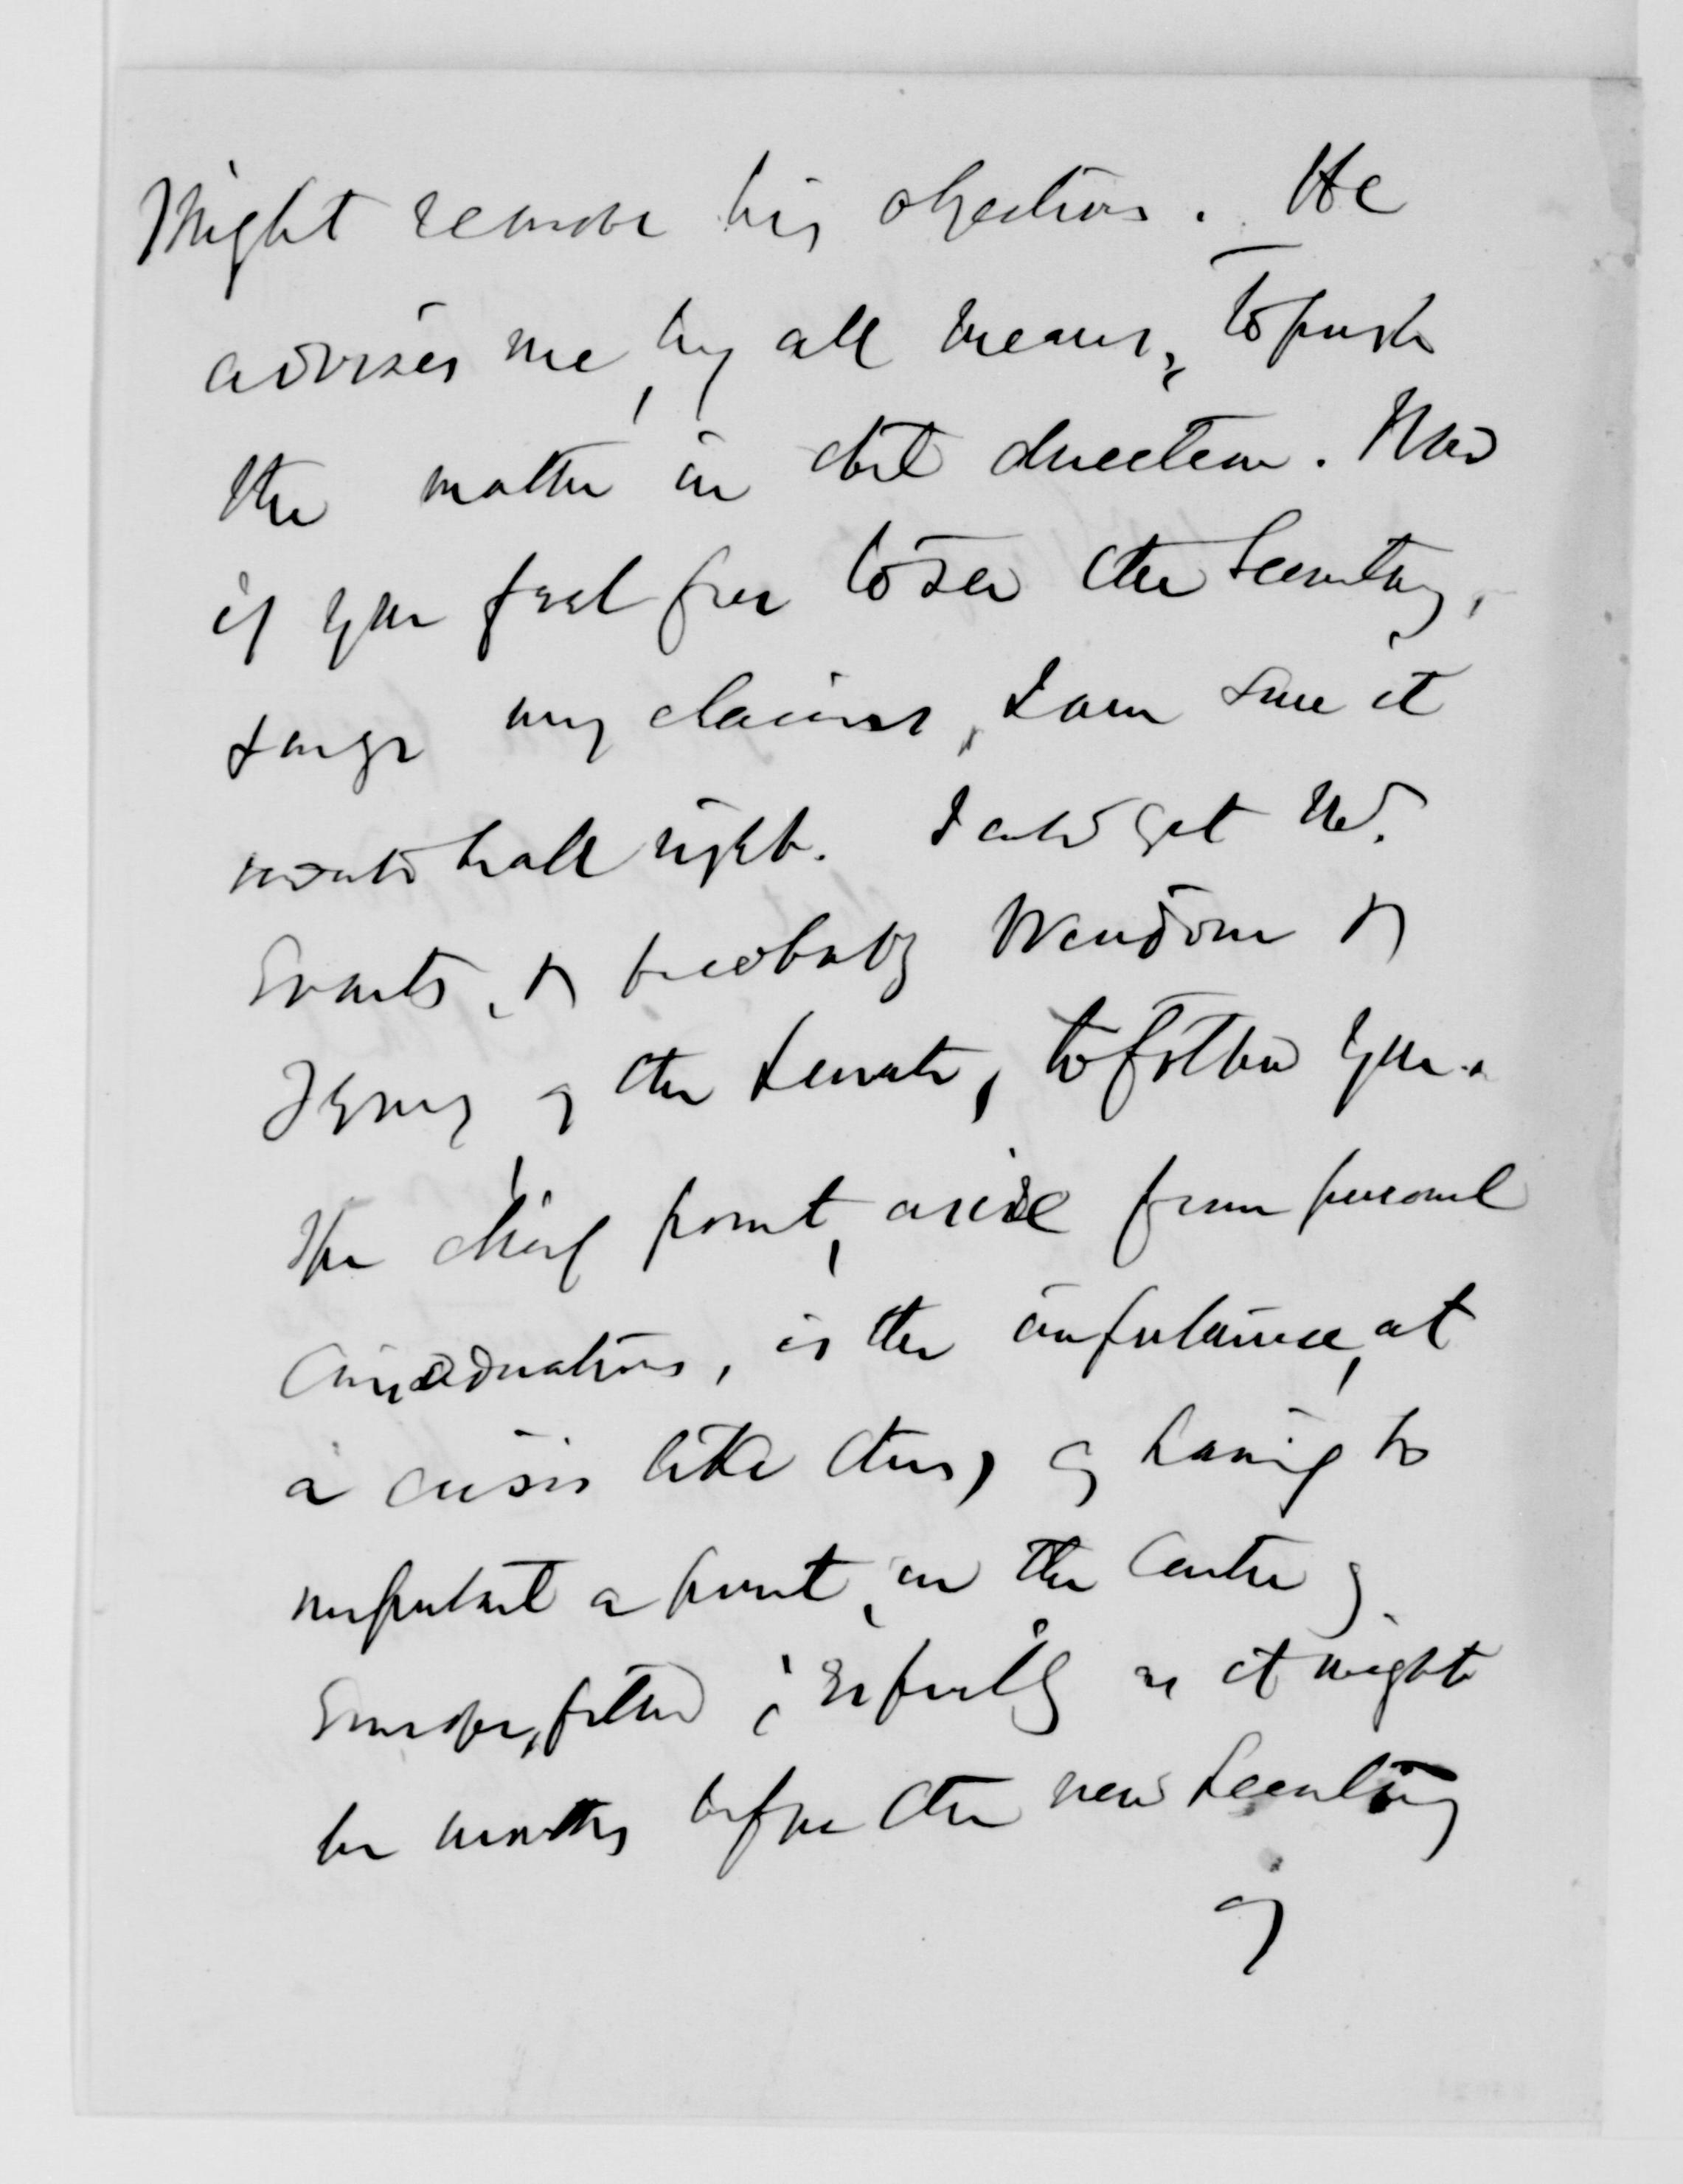 Might remove his objections. He
advises me, by all means, to push
the matter in that direction. Now
if you feel free to see the Secretary,
& urge my claims, I am sure it
would be all right. I could get Mr.
Evarts, & probably Windom &
of the Senate, to follow you.
The chief point, aside from personal
considerations, is the importance, at
a crisis like this, of having so
important a point, in the centre of
Europe, filled; especially as it might
be months before the new Secretary
of